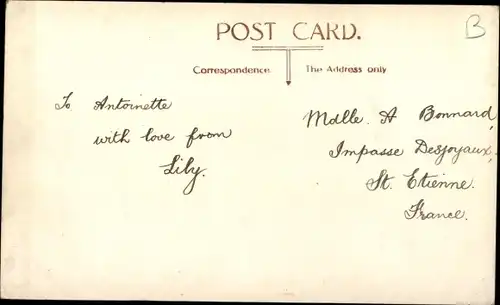 POST CARD.
B
Correspondence
The Address only
To Antoinette
with love from
Lily.
Mdlle. A Bonnard,
Impasse Desjoyaux,
St. Etienne.
France.